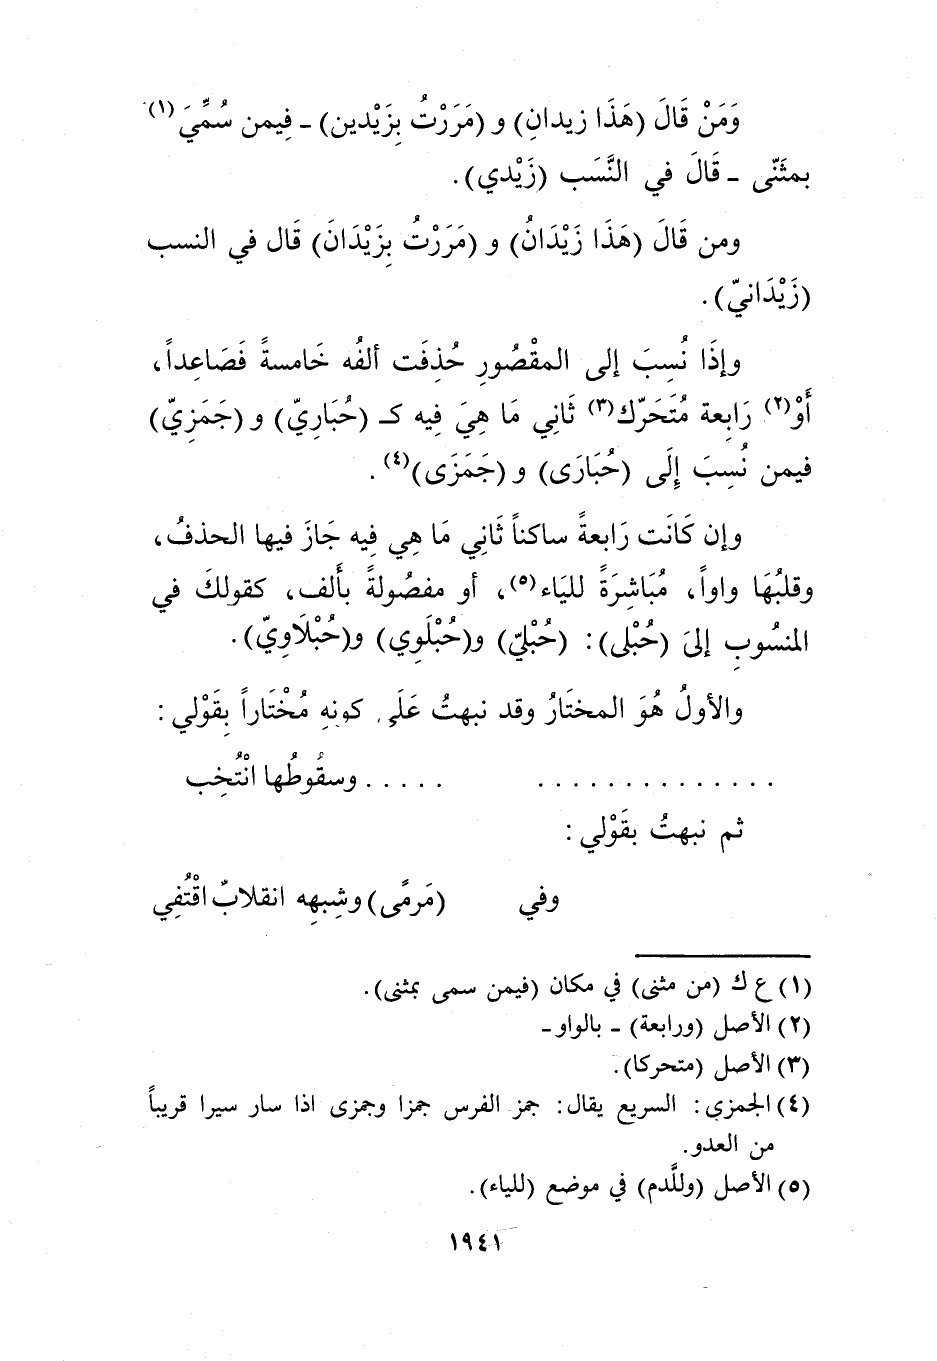 وَمَنْ قَالَ (هَذَا زيدانِ) و (مَرَرْتُ بِزَيْدين) - فِيمن سُمِّيَ(١)
بمثَنّى - قَالَ في النَّسَب (زَيْدي).
ومن قَالَ (هَذَا زَيْدَانُ) و (مَرَرْتُ بِزَيْدَانَ) قَال في النسب
(زَيْدَانيّ).
وإذَا نُسِبَ إلى المقْصُورِ حُذِفَت ألفُه خَامسةً فَصَاعداً،
أوْ(٢) رَابِعة مُتَحَرّك(٣) ثَانِي مَا هِيَ فِيه كـ (حُبَارِيّ) و (جَمَزِيّ)
فيمن نُسِبَ إِلَى (حُبَارَى) و (جَمَزَى)(٤).
وإن كَانَت رَابعةً ساكناً ثَانِي مَا هِي فِيه جَازَ فيها الحذفُ،
وقلبُهَا واواً، مُبَاشِرَةً لليَاء(٥)، أو مفصُولةً بأَلف، كقولكَ في
المنسُوبِ إلىَ (حُبْلى): (حُبْليّ) و(حُبْلَوِي) و(حُبْلَاوِيّ).
والأولُ هُوَ المختَارُ وقد نبهتُ عَلَى كونهِ مُخْتَاراً بِقَوْلي:
. . . . . . . . . . . . . . . . . . . وسقُوطُها انْتُخِب
ثم نبهتُ بقَوْلي:
وفي (مَرمًى) وشِبهِه انقلابٌ اقْتُفِي
(١) ع ك (من مثنى) في مكان (فيمن سمى بمثنى).
(٢) الأصل (ورابعة) - بالواو -
(٣) الأصل (متحركا).
(٤) الجمزي: السريع يقال: جمز الفرس جمزا وجمزى اذا سار سيرا قريباً
من العدو.
(٥) الأصل (وللَّدم) في موضع (للياء).
١٩٤١